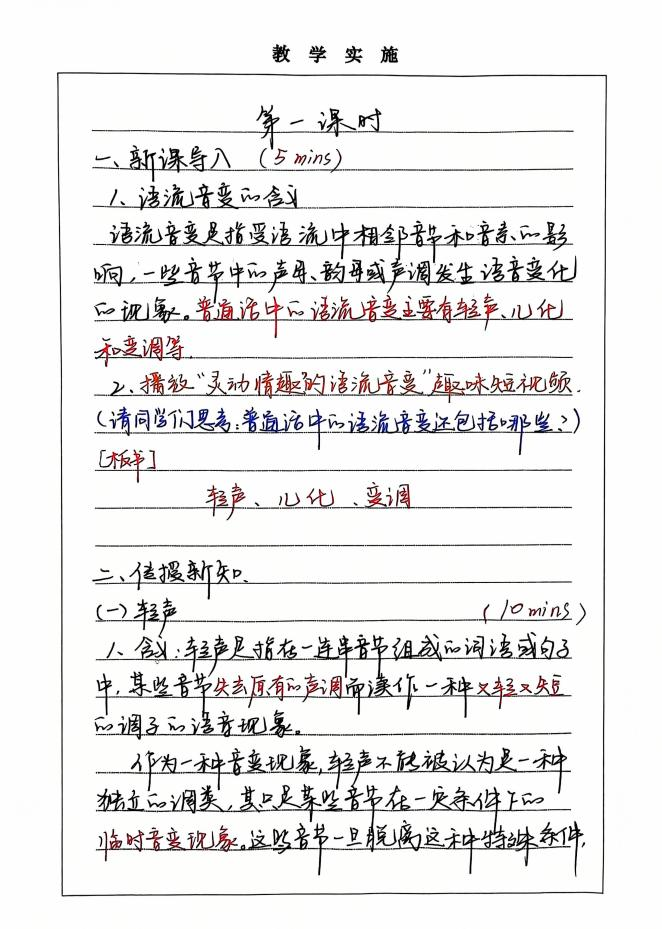 教 学 实 施
第一课时
一、新课导入 (5 mins)
1、语流音变的含义
语流音变是指受语流中相邻音节和音素的影
响,一些音节中的声母、韵母或声调发生语音变化
的现象。普通话中的语流音变主要有轻声、儿化
和变调等.
2、播放“灵动情趣的语流音变”趣味短视频.
(请同学们思考:普通话中的语流音变还包括哪些?)
[板书]
轻声、儿化、变调
二、传授新知.
(一)轻声 (10mins)
1、含义:轻声是指在一连串音节组成的词语或句子
中,某些音节失去原有的声调而读作一种又轻又短
的调子的语音现象。
作为一种音变现象,轻声不能被认为是一种
独立的调类,其只是某些音节在一定条件下的
临时音变现象。这些音节一旦脱离这种特殊条件,